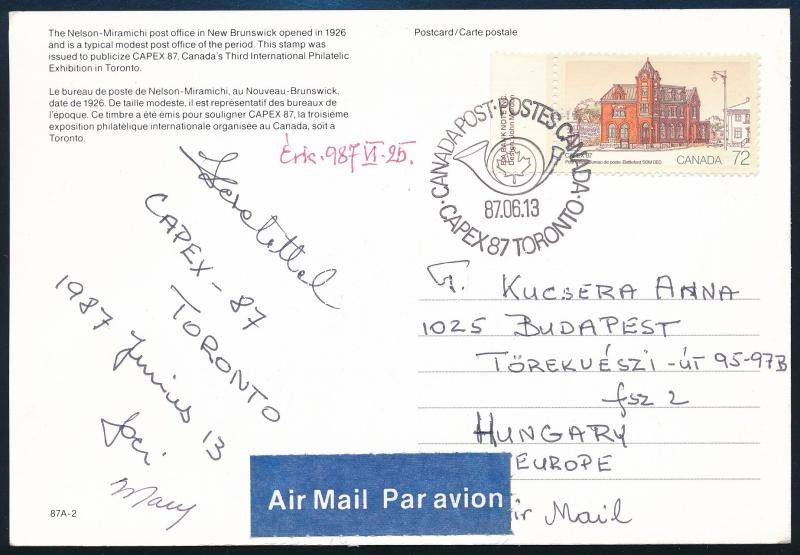 The Nelson-Miramichi post office in New Brunswick opened in 1926
and is a typical modest post office of the period. This stamp was
issued to publicize CAPEX 87, Canada's Third International Philatelic
Exhibition in Toronto.
Le bureau de poste de Nelson-Miramichi, au Nouveau-Brunswick,
date de 1926. De taille modeste, il est représentatif des bureaux de
l'époque. Ce timbre a été émis pour souligner CAPEX 87, la troisième
exposition philatélique internationale organisée au Canada, soit à
Toronto.
Érk. 987 VI. 25.
Szeretettel
CAPEX - 87
TORONTO
1987 Junius 13
Joci
Mary
87A-2
Postcard/Carte postale
CAPEX 87
CANADA 72
CANADA POST · POSTES CANADA
87.06.13
CAPEX 87 TORONTO
T. KUCSERA ANNA
1025 BUDAPEST
TÖREKVÉSZI - ÚT 95-97B
fsz 2
HUNGARY
EUROPE
Air Mail Par avion
Mail